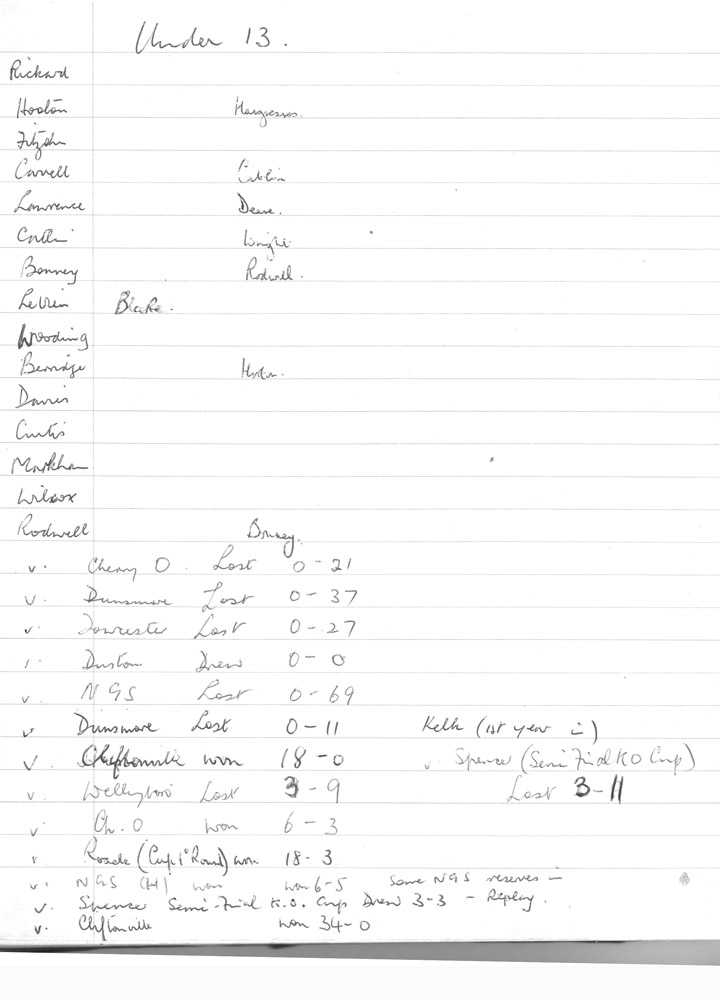 Under 13.
Rickard
Hooton Hargreaves.
Fitzjohn
Carvell Catlin
Lawrence Deeve.
Catlin Wright
Bonney Rodwell.
LeVien Blake.
Wooding
Berridge Horton.
Davies
Curtis
Markham
Wilcox
Rodwell Bonney.
v. Cherry O. Lost 0-21
v. Dunsmore Lost 0-37
v. Towcester Lost 0-27
v. Duston Drew 0-0
v. NGS Lost 0-69
v. Dunsmore Lost 0-11 Kelk (1st year in)
v. Cliftonville won 18-0 v. Spencer (Semi Final KO Cup)
v. Wellyboro' Lost 3-9 Lost 3-11
v. Ch. O won 6-3
v. Roade (Cup 1st Round) won 18-3
v. NGS (H) won won 6-5 Some NGS reserves in
v. Spencer Semi-Final K.O. Cup Drew 3-3 - Replay.
v. Cliftonville won 34-0